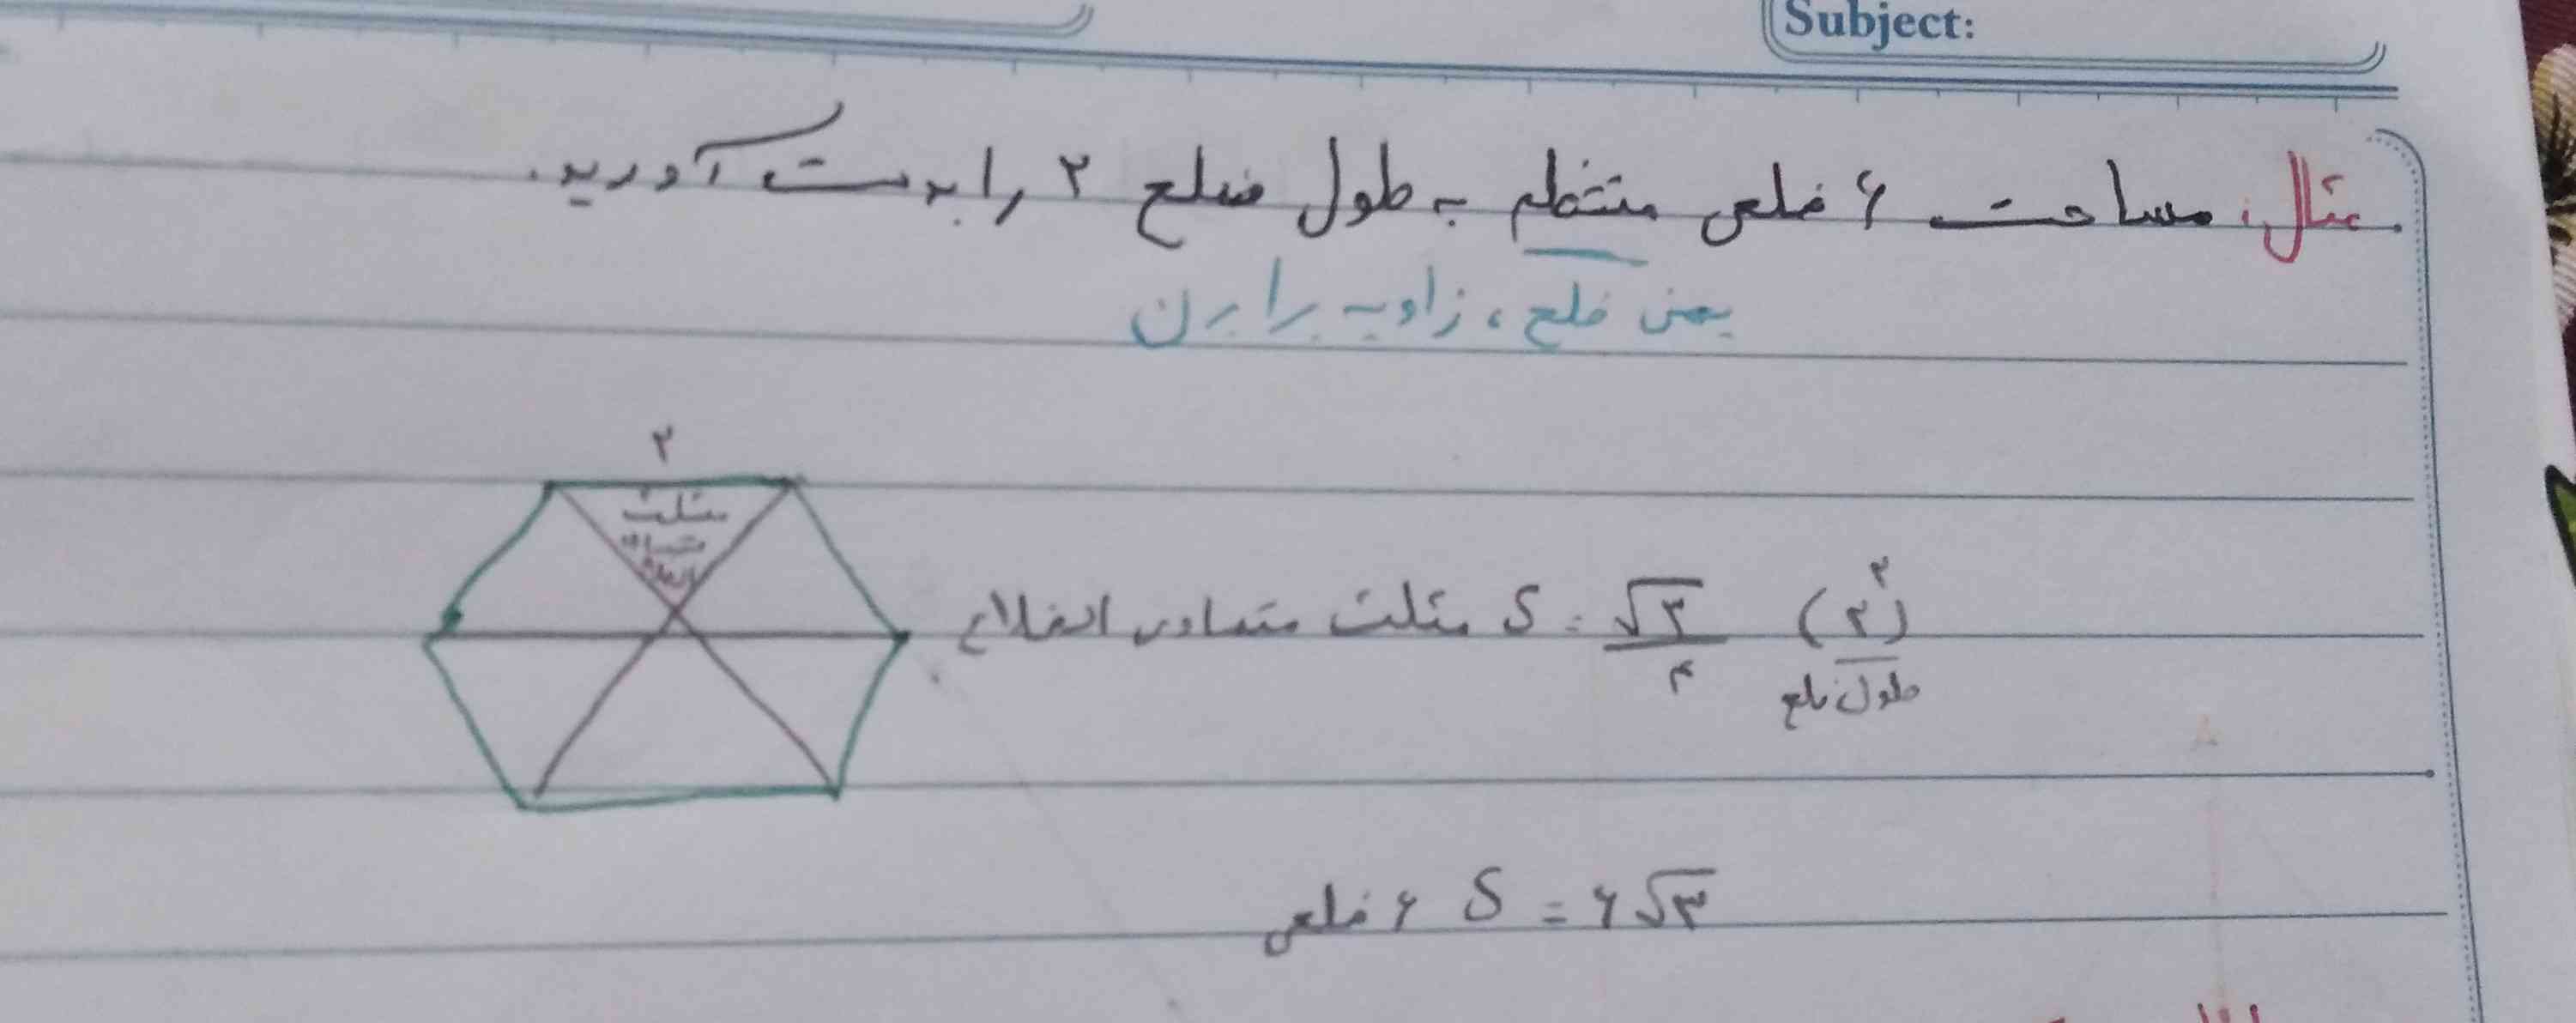 Subject:
مثال: مساحت ۶ ضلعی منتظم به طول ضلع ۲ را بدست آورید.
یعنی ضلع، زاویه برابرن
۲
مثلث
متساوی
الاضلاع
S مثلث متساوی الاضلاع = √۳/۴ (۲)^۲
طول ضلع
S ۶ ضلعی = ۶√۳